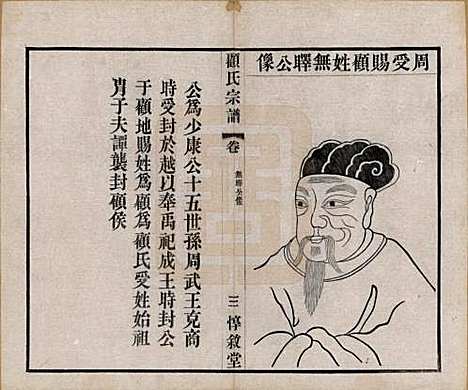 周受賜顧姓無睪公像
顧氏宗譜
卷
三
惇敘堂
公為少康公十五世孫周武王克商
時受封於越以奉禹祀成王時封公
于顧地賜姓為顧為顧氏受姓始祖
胄子夫譚襲封顧侯